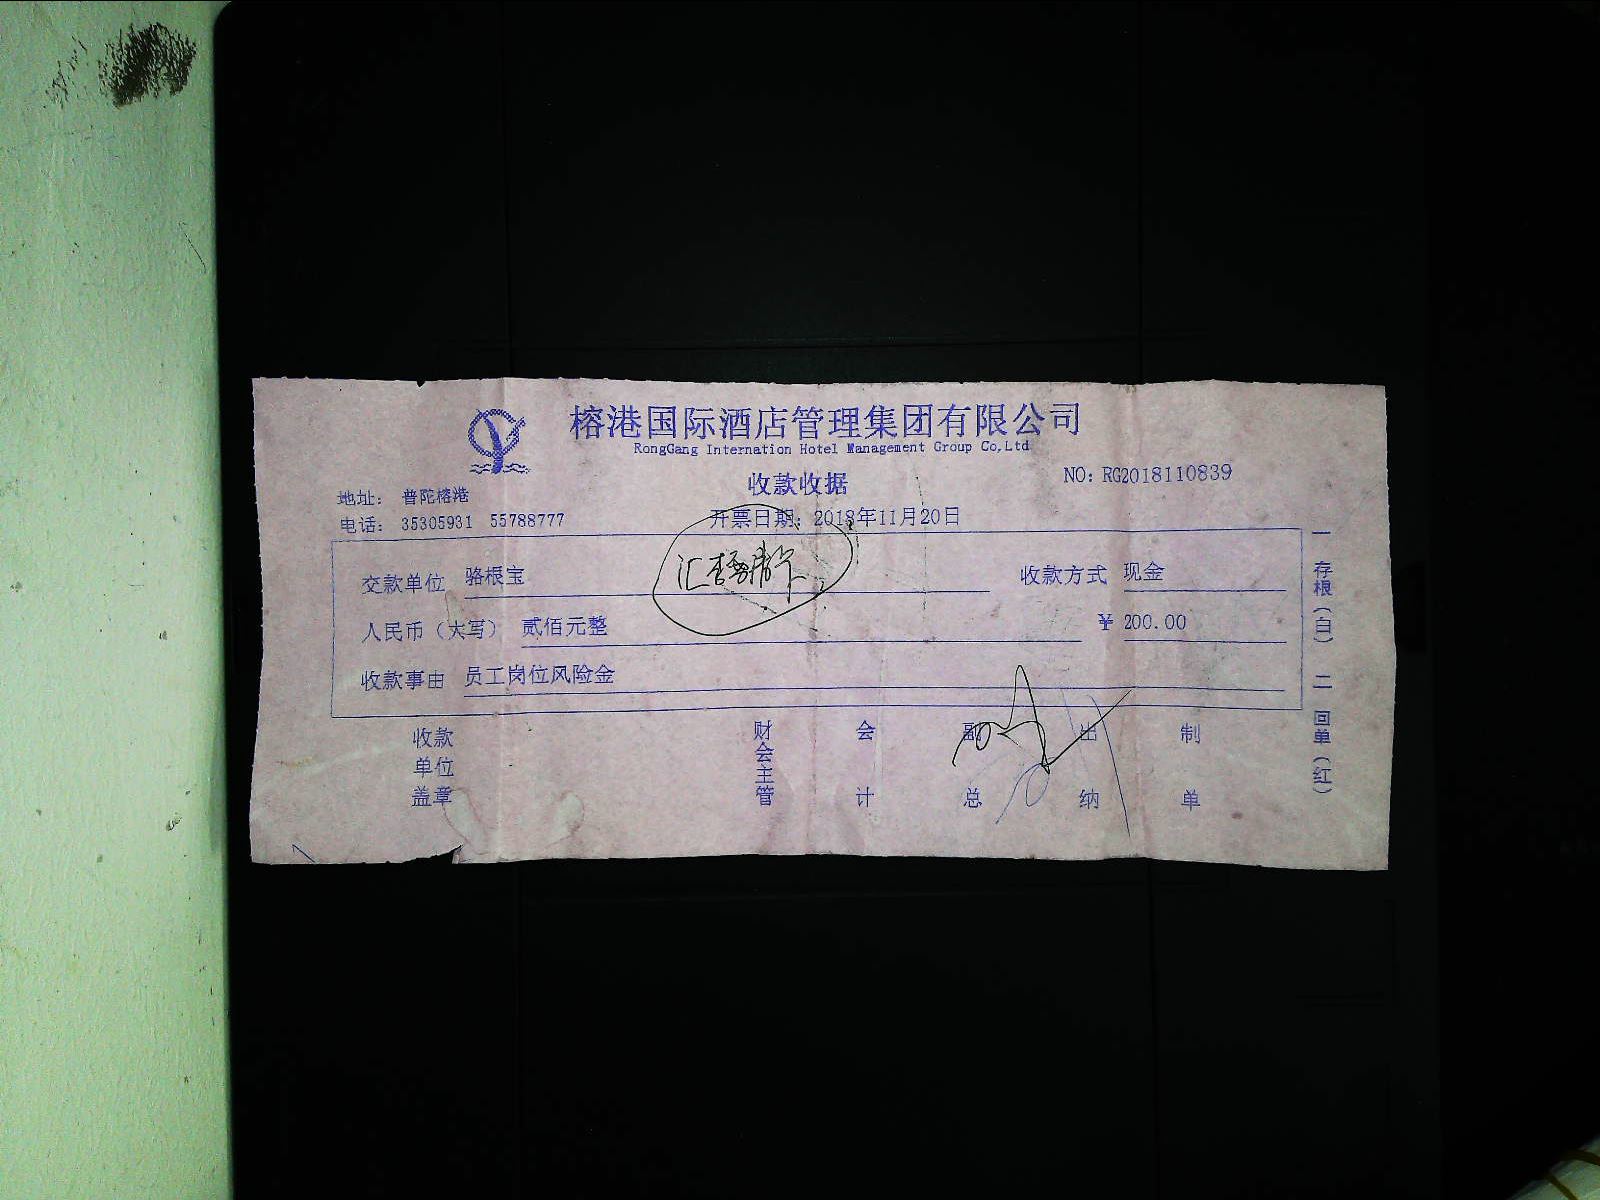 榕港国际酒店管理集团有限公司
RongGang Internation Hotel Management Group Co,Ltd
收款收据
NO: RG2018110839
地址： 普陀榕港
电话： 35305931 55788777
开票日期： 2018年11月20日
交款单位 骆根宝 收款方式 现金
人民币（大写） 贰佰元整 ¥ 200.00
收款事由 员工岗位风险金
收款单位盖章 财会主管 会计 副总 出纳 制单
一 存根（白） 二 回单（红）